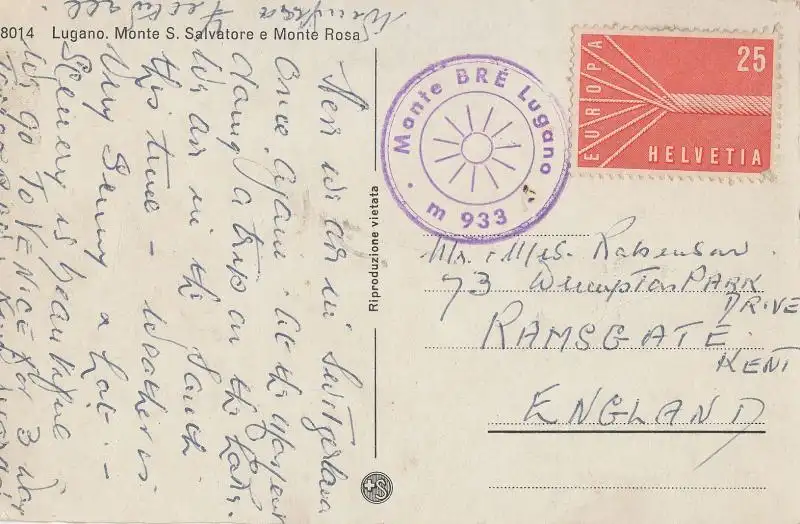 8014 Lugano. Monte S. Salvatore e Monte Rosa
Here we are in Switzerland
Once again. At the moment
doing a trip on the Lake.
We are in the South
this time - weather is
very sunny & hot -
Scenery is beautiful
We go TO VENICE for 3 days
Riproduzione vietata
Monte BRÉ Lugano
m 933
EUROPA
25
HELVETIA
Mr. & Mrs.
73 PARK
DRIVE
RAMSGATE.
KENT
ENGLAND
S